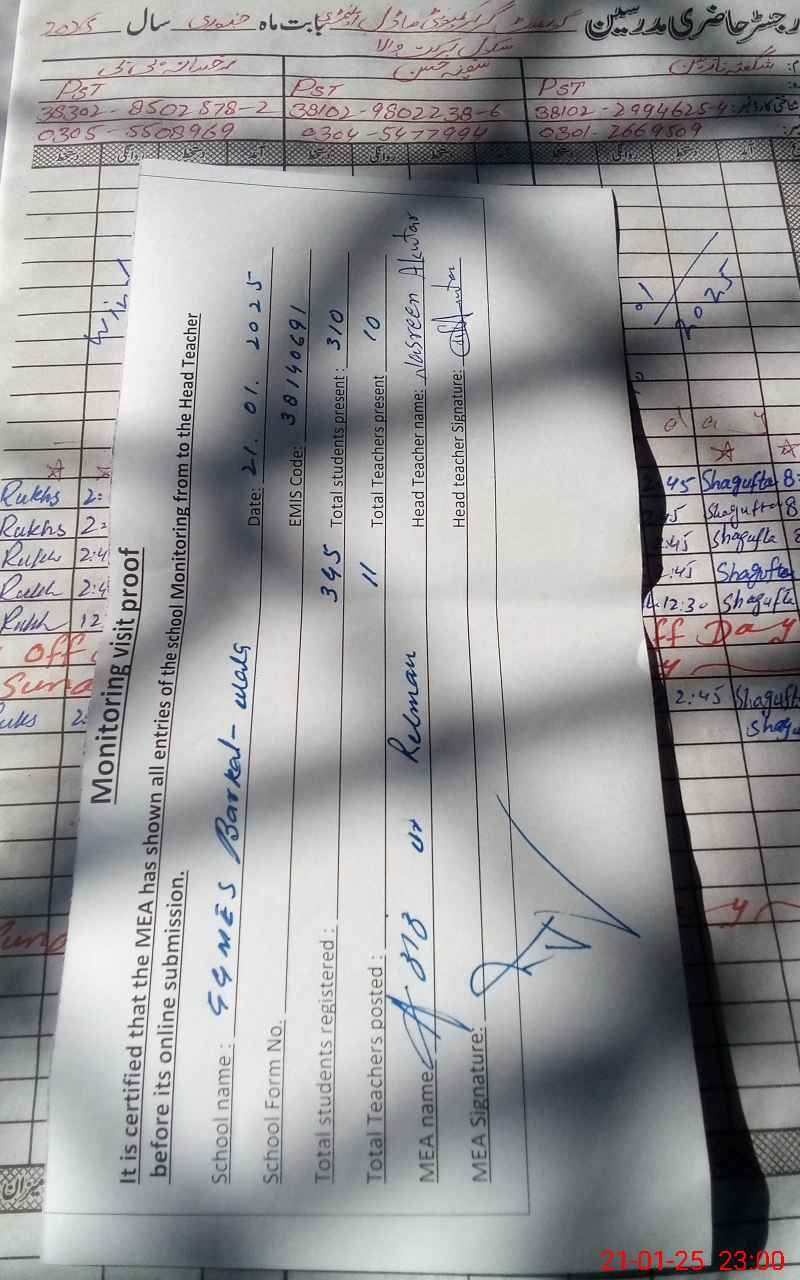 رجسٹر حاضری مدرسین گورنمنٹ گرلز کمیونٹی ماڈل ایلیمنٹری بابت ماہ جنوری سال 2025
سکول برکت والا
شگفتہ نازنین
PST PST PST
38302-8502878-2 38102-9802238-6 شناختی کارڈ نمبر: 38102-2994625-4
0305-5508969 0304-5477994 0301-2669509
دستخط روانگی دستخط آمد دستخط روانگی دستخط آمد دستخط روانگی دستخط آمد
Monitoring visit proof
It is certified that the MEA has shown all entries of the school Monitoring from to the Head Teacher
before its online submission.
School name : GGMES Barkat-wala Date: 21.01.2025
School Form No. EMIS Code: 38140691
Total students registered : 345 Total students present : 310
Total Teachers posted : 11 Total Teachers present 10
MEA name: ur Rehman Head Teacher name: Nasreen Akhtar
MEA Signature: Head teacher Signature:
2025
Rukhs 2: 2:45 Shagufta 8
Rukhs 2: Shagufta 8
2:4 Shagufta 8
2:4 :45 Shagufta
12 12:30 Shagufta
off ff Day
Sund
2: 2:45 Shaguft
میزان
21-01-25 23:00